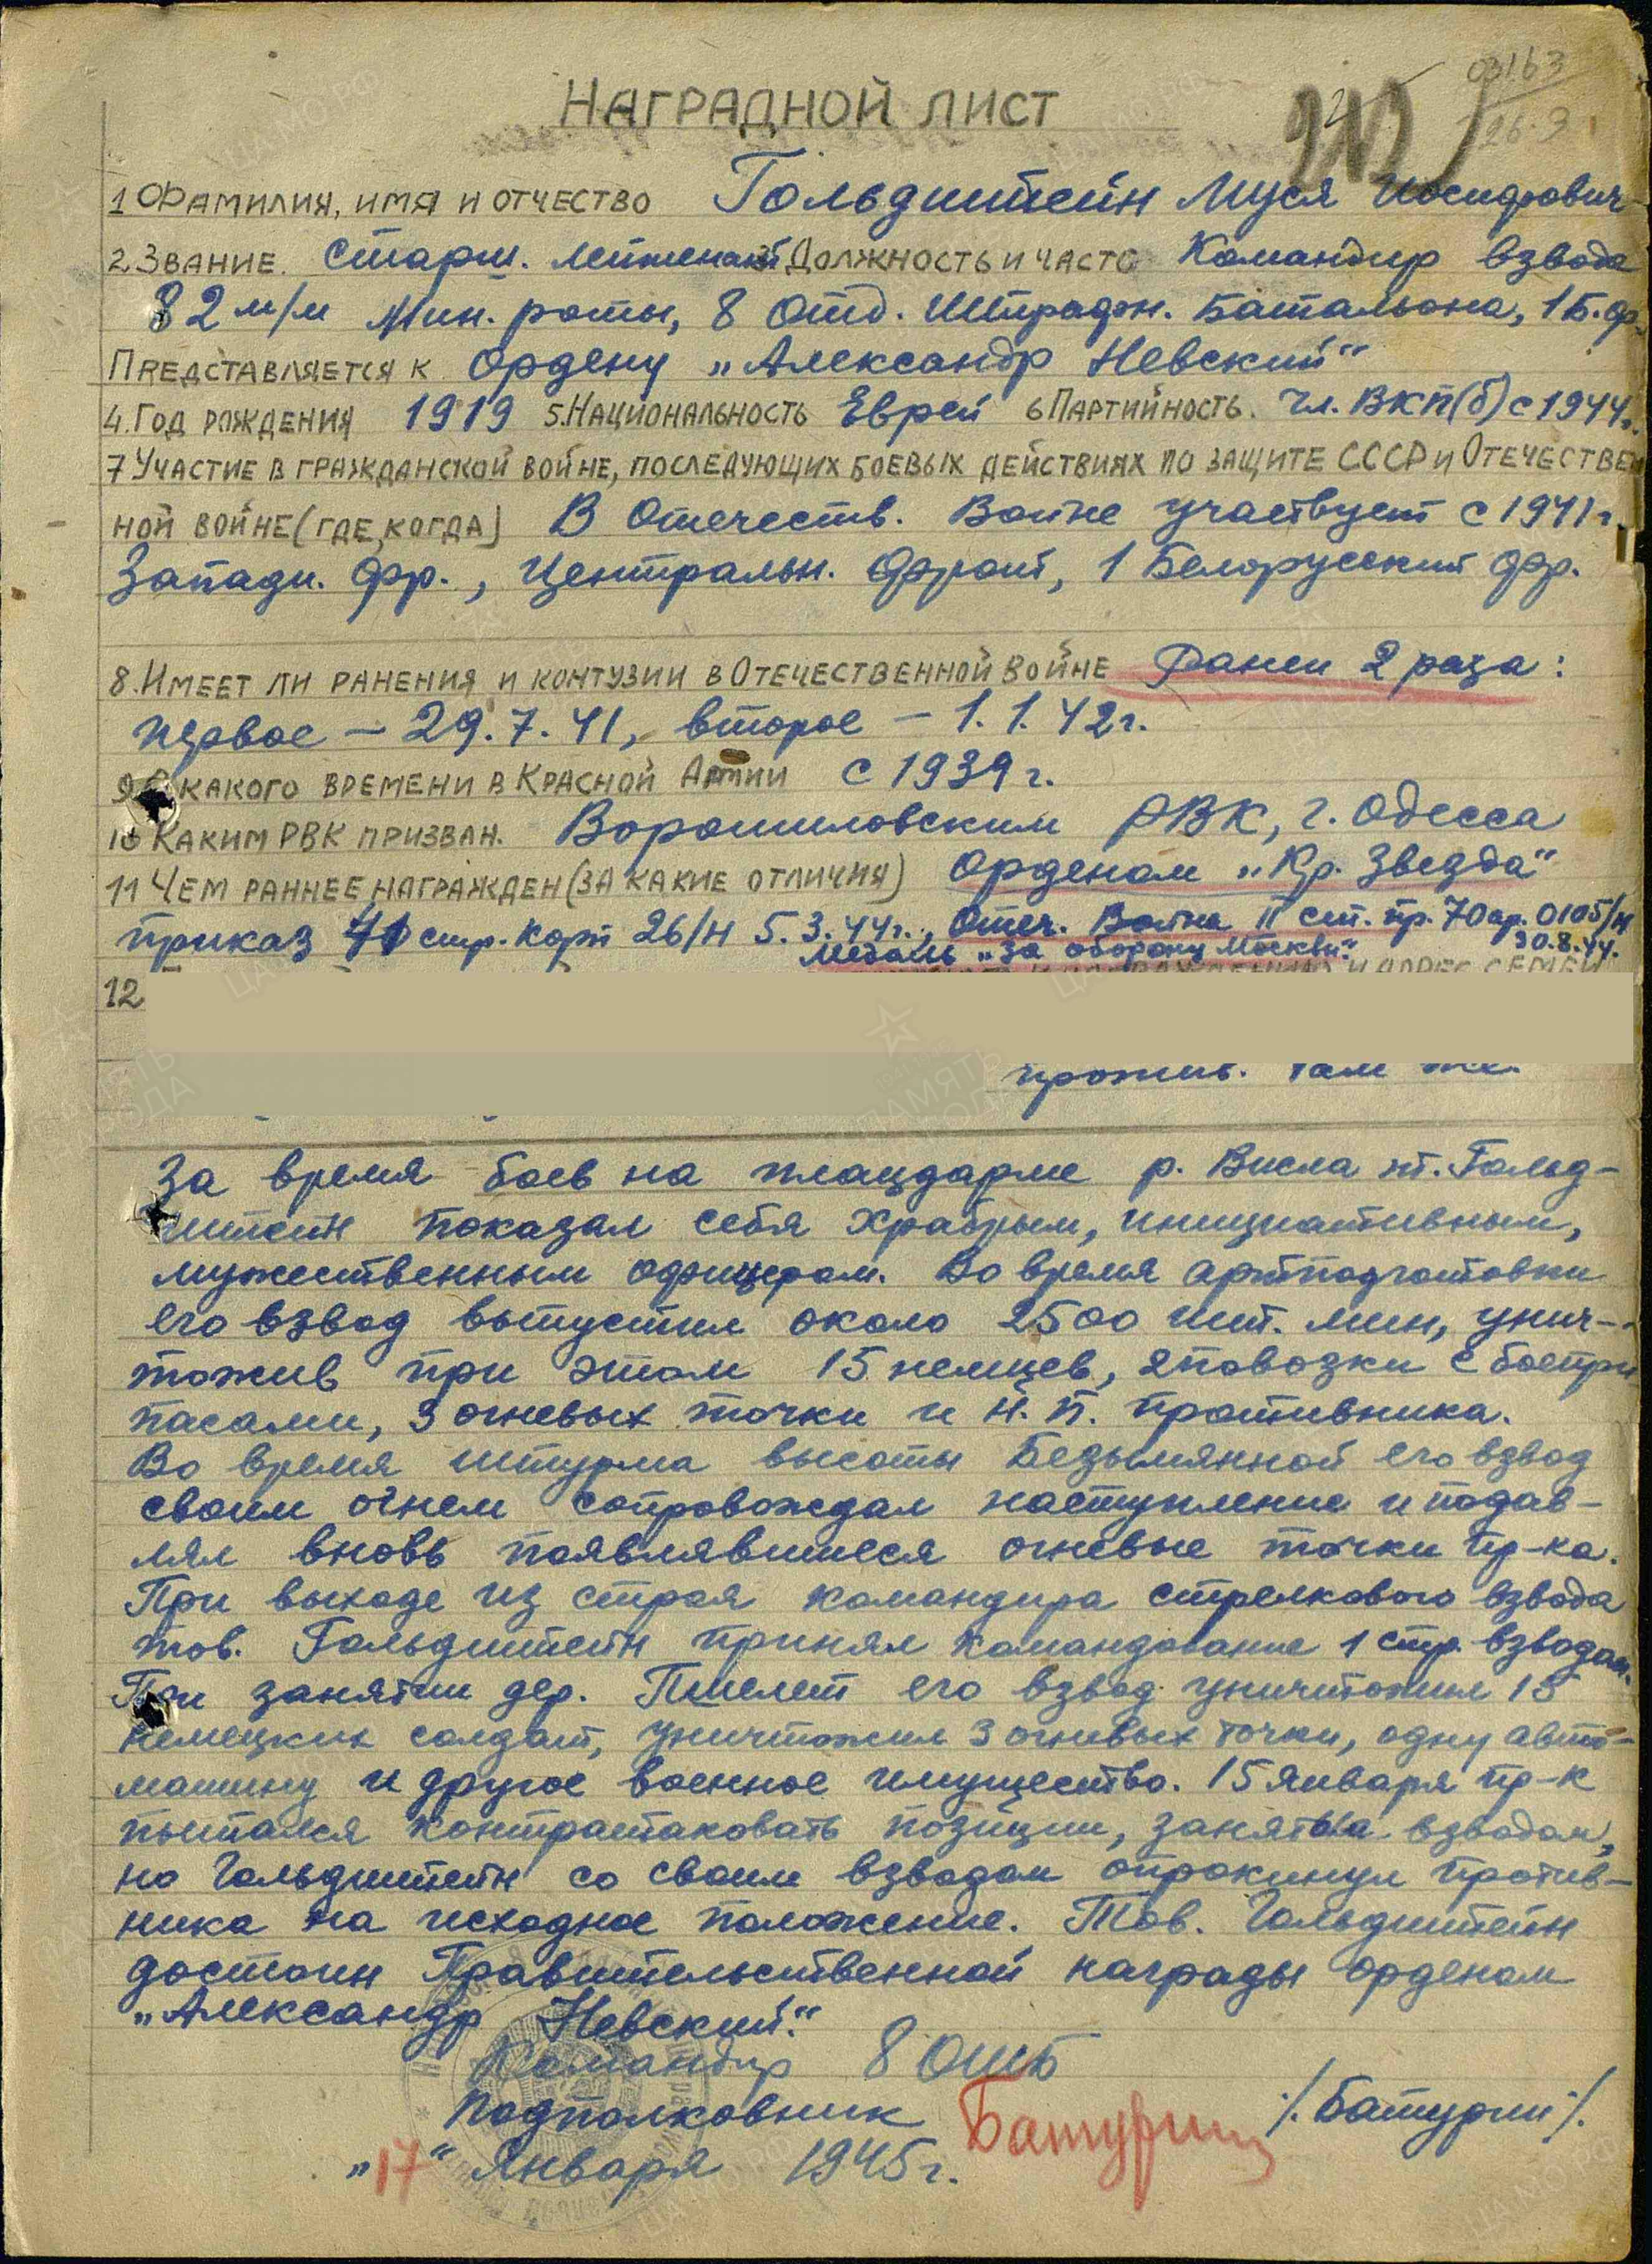 03163
26.9
212
НАГРАДНОЙ ЛИСТ
1 ФАМИЛИЯ, ИМЯ И ОТЧЕСТВО Гольдштейн Муся Иосифович
2 ЗВАНИЕ. Старш. лейтенант 3 ДОЛЖНОСТЬ И ЧАСТЬ Командир взвода
82 м/м Мин. роты, 8 Отд. Штрафн. Батальона, 1 Б. ф.
ПРЕДСТАВЛЯЕТСЯ К Ордену „Александр Невский“
4. ГОД РОЖДЕНИЯ 1919 5. НАЦИОНАЛЬНОСТЬ Еврей 6 ПАРТИЙНОСТЬ. Чл. ВКП(б) с 1944г.
7 УЧАСТИЕ В ГРАЖДАНСКОЙ ВОЙНЕ, ПОСЛЕДУЮЩИХ БОЕВЫХ ДЕЙСТВИЯХ ПО ЗАЩИТЕ СССР И ОТЕЧЕСТВЕН
НОЙ ВОЙНЕ (ГДЕ, КОГДА) В Отечеств. Войне участвует с 1941 г.
Западн. фр., Центральн. фронт, 1 Белорусский фр.
8. ИМЕЕТ ЛИ РАНЕНИЯ И КОНТУЗИИ В ОТЕЧЕСТВЕННОЙ ВОЙНЕ Ранен 2 раза:
первое – 29.7.41, второе – 1.1.42г.
9 С КАКОГО ВРЕМЕНИ В КРАСНОЙ АРМИИ с 1939 г.
10 КАКИМ РВК ПРИЗВАН. Ворошиловским РВК, г. Одесса
11 ЧЕМ РАННЕЕ НАГРАЖДЕН (ЗА КАКИЕ ОТЛИЧИЯ) Орденом „Кр. Звезда“
приказ 41 стр. корп 26/Н 5.3.44г., Отеч. Война II ст. пр. 70 ар. 0105/Н
медаль „За оборону Москвы“. 30.8.44.
12
прожив. там же.
За время боев на плацдарме р. Висла т. Гольд-
штейн показал себя храбрым, инициативным,
мужественным офицером. Во время артподготовки
его взвод выпустил около 2500 шт. мин, унич-
тожив при этом 15 немцев, 2 повозки с боепри
пасами, 3 огневых точки и Н.П. противника.
Во время штурма высоты Безымянной его взвод
своим огнем сопровождал наступление и подав-
лял вновь появлявшиеся огневые точки пр-ка.
При выходе из строя командира стрелкового взвода
тов. Гольдштейн принял командование 1 стр. взводом.
При занятии дер. его взвод уничтожил 15
немецких солдат, уничтожил 3 огневых точки, одну авто-
машину и другое военное имущество. 15 января пр-к
пытался контратаковать позиции, занятые взводом,
но Гольдштейн со своим взводом опрокинул против-
ника на исходное положение. Тов. Гольдштейн
достоин Правительственной награды орденом
„Александр Невский“.
Командир 8 ОШБ
Подполковник Батурин /Батурин/.
„17“ Января 1945г.